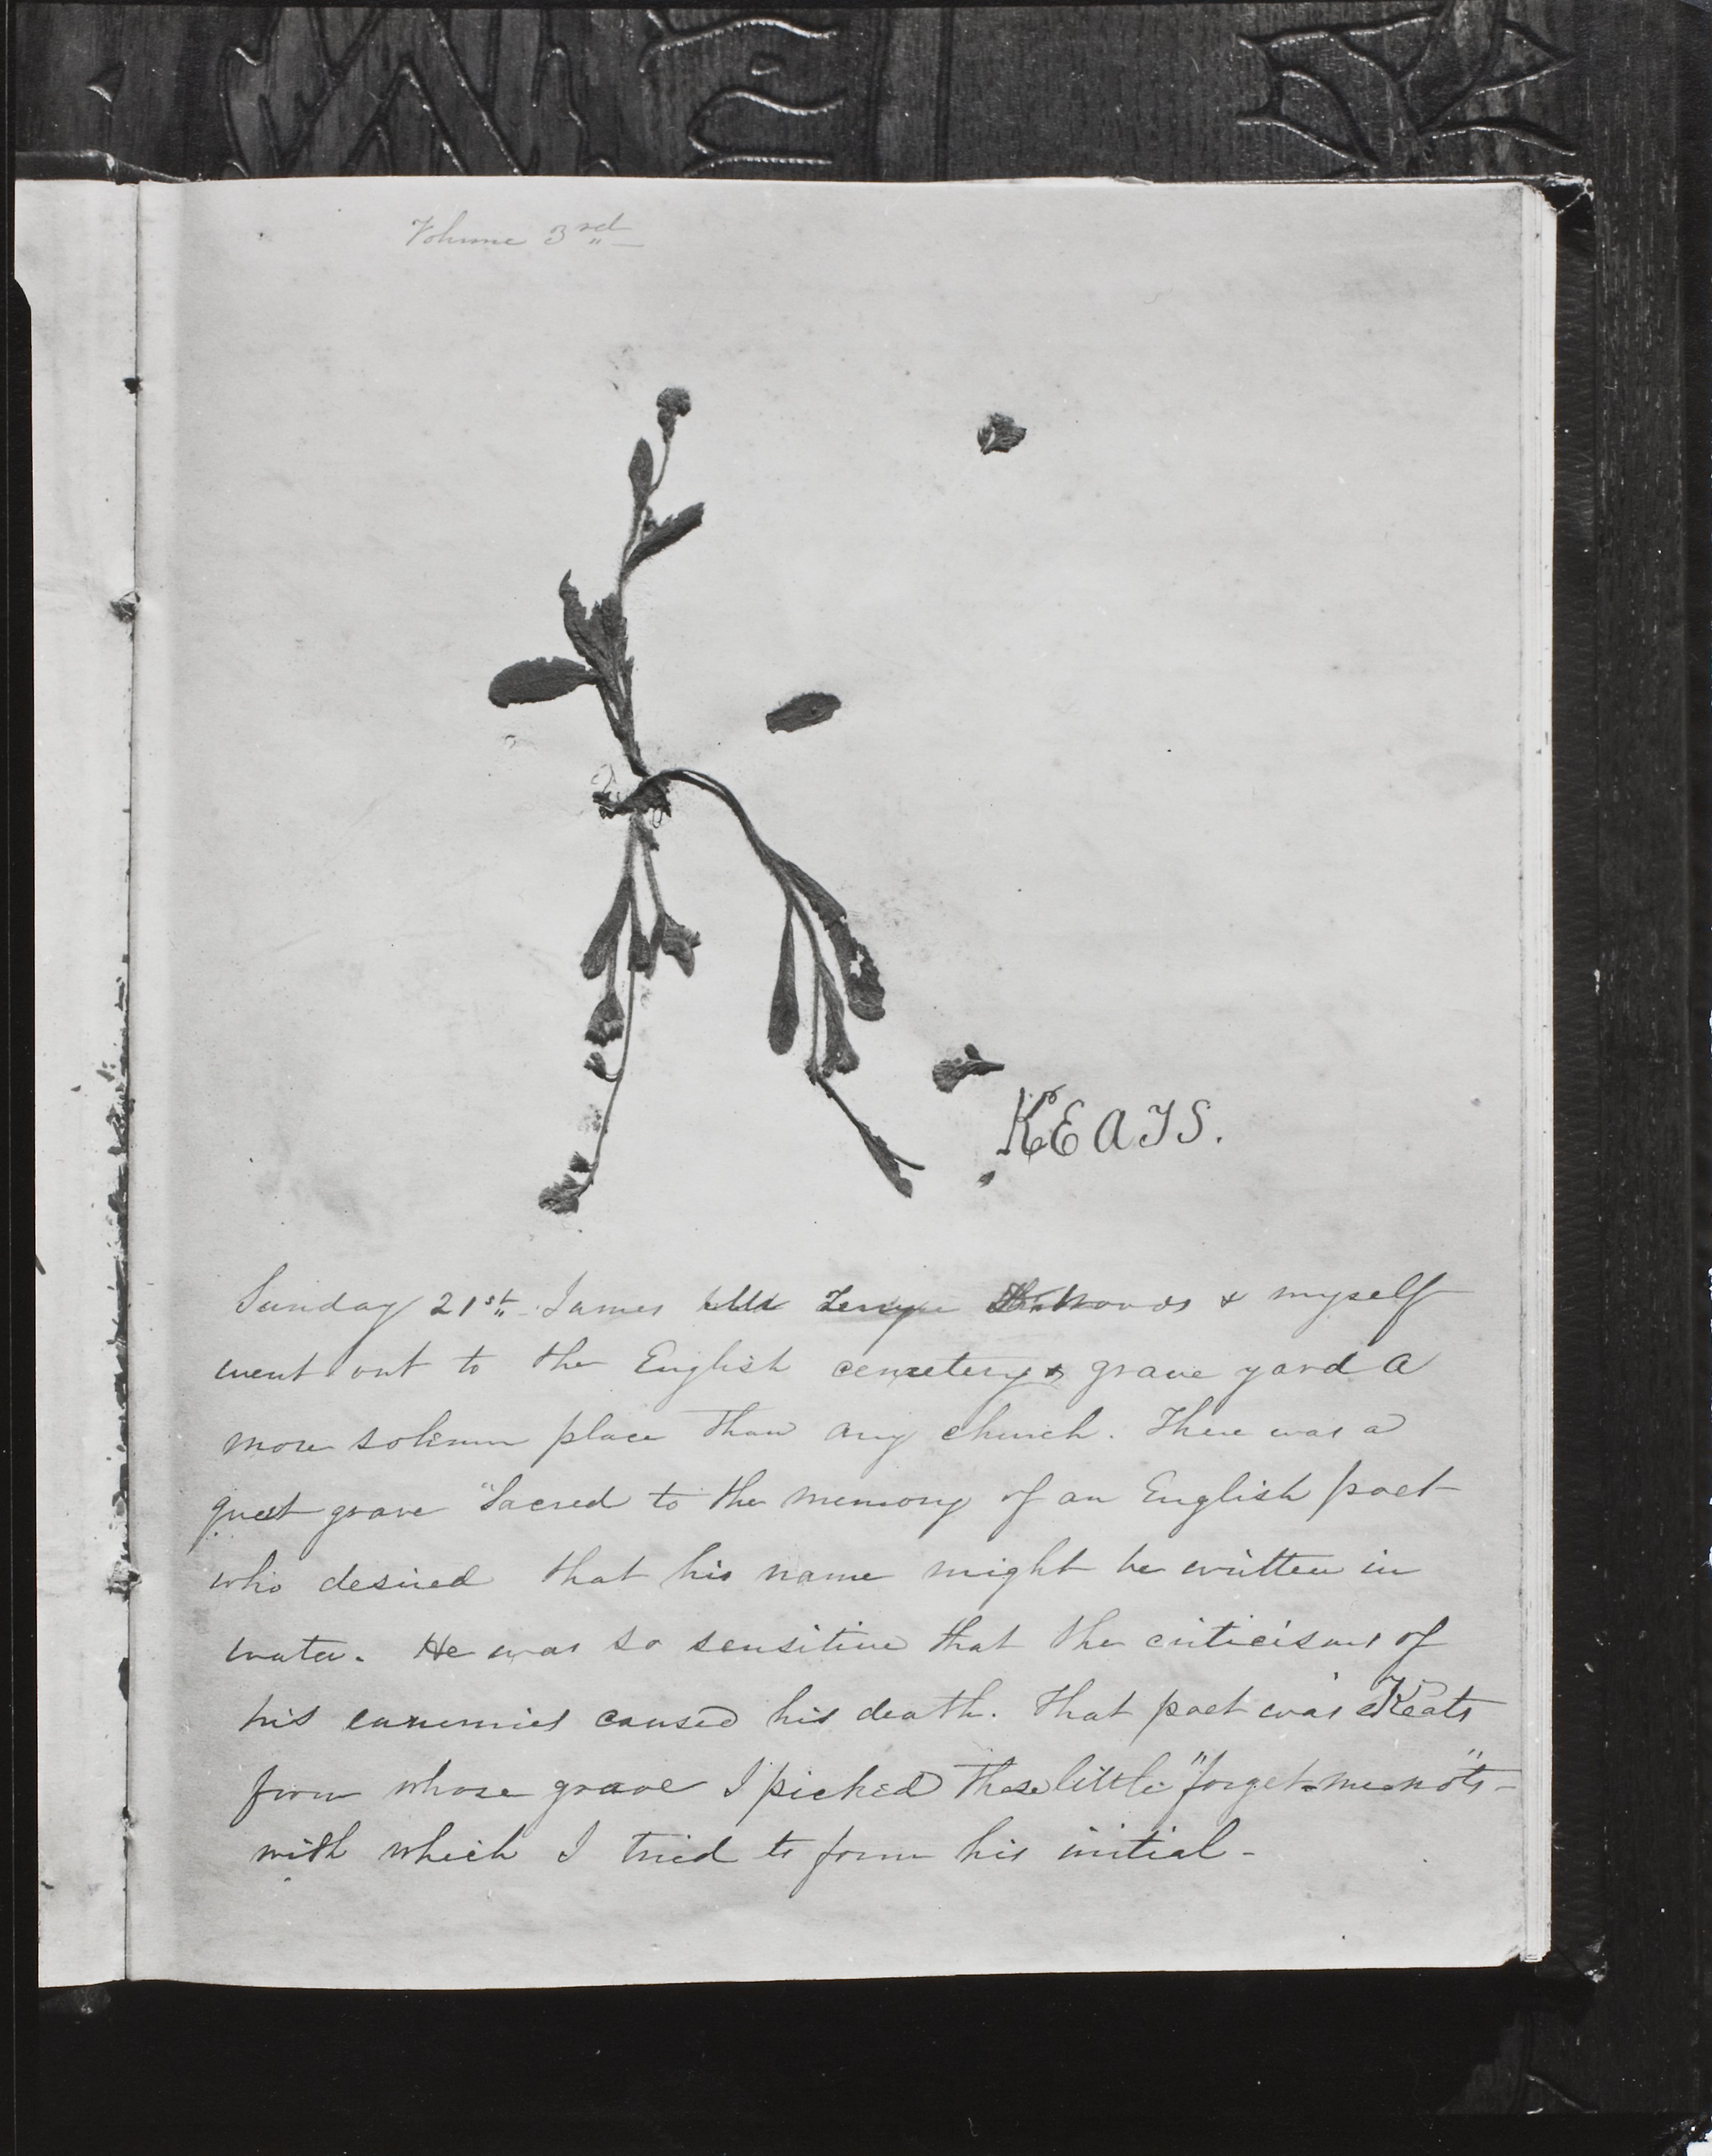 Volume 3rd
KEATS.
Sunday 21st James & myself
went out to the English cemetery & grave yard A
more solemn place than any church. There was a
quiet grave "Sacred to the memory of an English poet
who desired that his name might be written in
water. He was so sensitive that the criticisms of
his enemies caused his death. That poet was Keats
from whose grave I picked these little "forget-me-nots"-
with which I tried to form his initial-